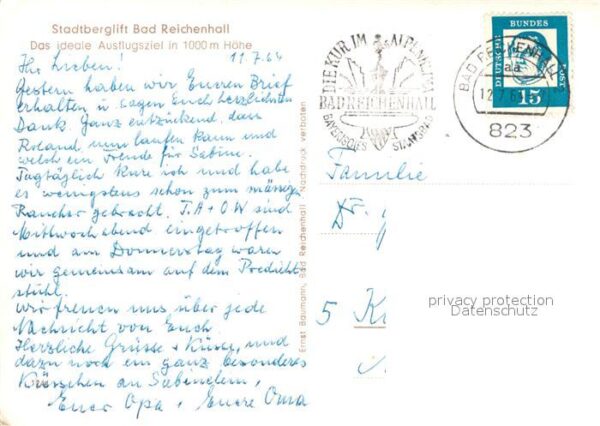 Stadtberglift Bad Reichenhall
Das ideale Ausflugsziel in 1000 m Höhe
Ihr Lieben! 11.7.64
Gestern haben wir Euren Brief
erhalten u. sagen Euch herzlichsten
Dank. Ganz entzückend, dass
Roland nun laufen kann und
welch eine Freude für Sabine.
Tagtäglich kure ich und habe
es wenigstens schon zum mässigen
Raucher gebracht. T.A + O W sind
Mittwochabend eingetroffen
und am Donnerstag waren
wir gemeinsam auf dem Predigt
stuhl.
Wir freuen uns über jede
Nachricht von Euch.
Herzliche Grüsse + Küsse, und
dazu noch ein ganz besonderes
Küsschen an Sabinchen,
Euer Opa, Eure Oma
Ernst Baumann, Bad Reichenhall Nachdruck verboten
DIE KUR IM ALPENKLIMA
BAD REICHENHALL
BAYERISCHES STAATSBAD
BAD REICHENHALL
aa
12.7.6
823
DEUTSCHE BUNDES POST
15
Familie
Dr.
5 K
privacy protection
Datenschutz